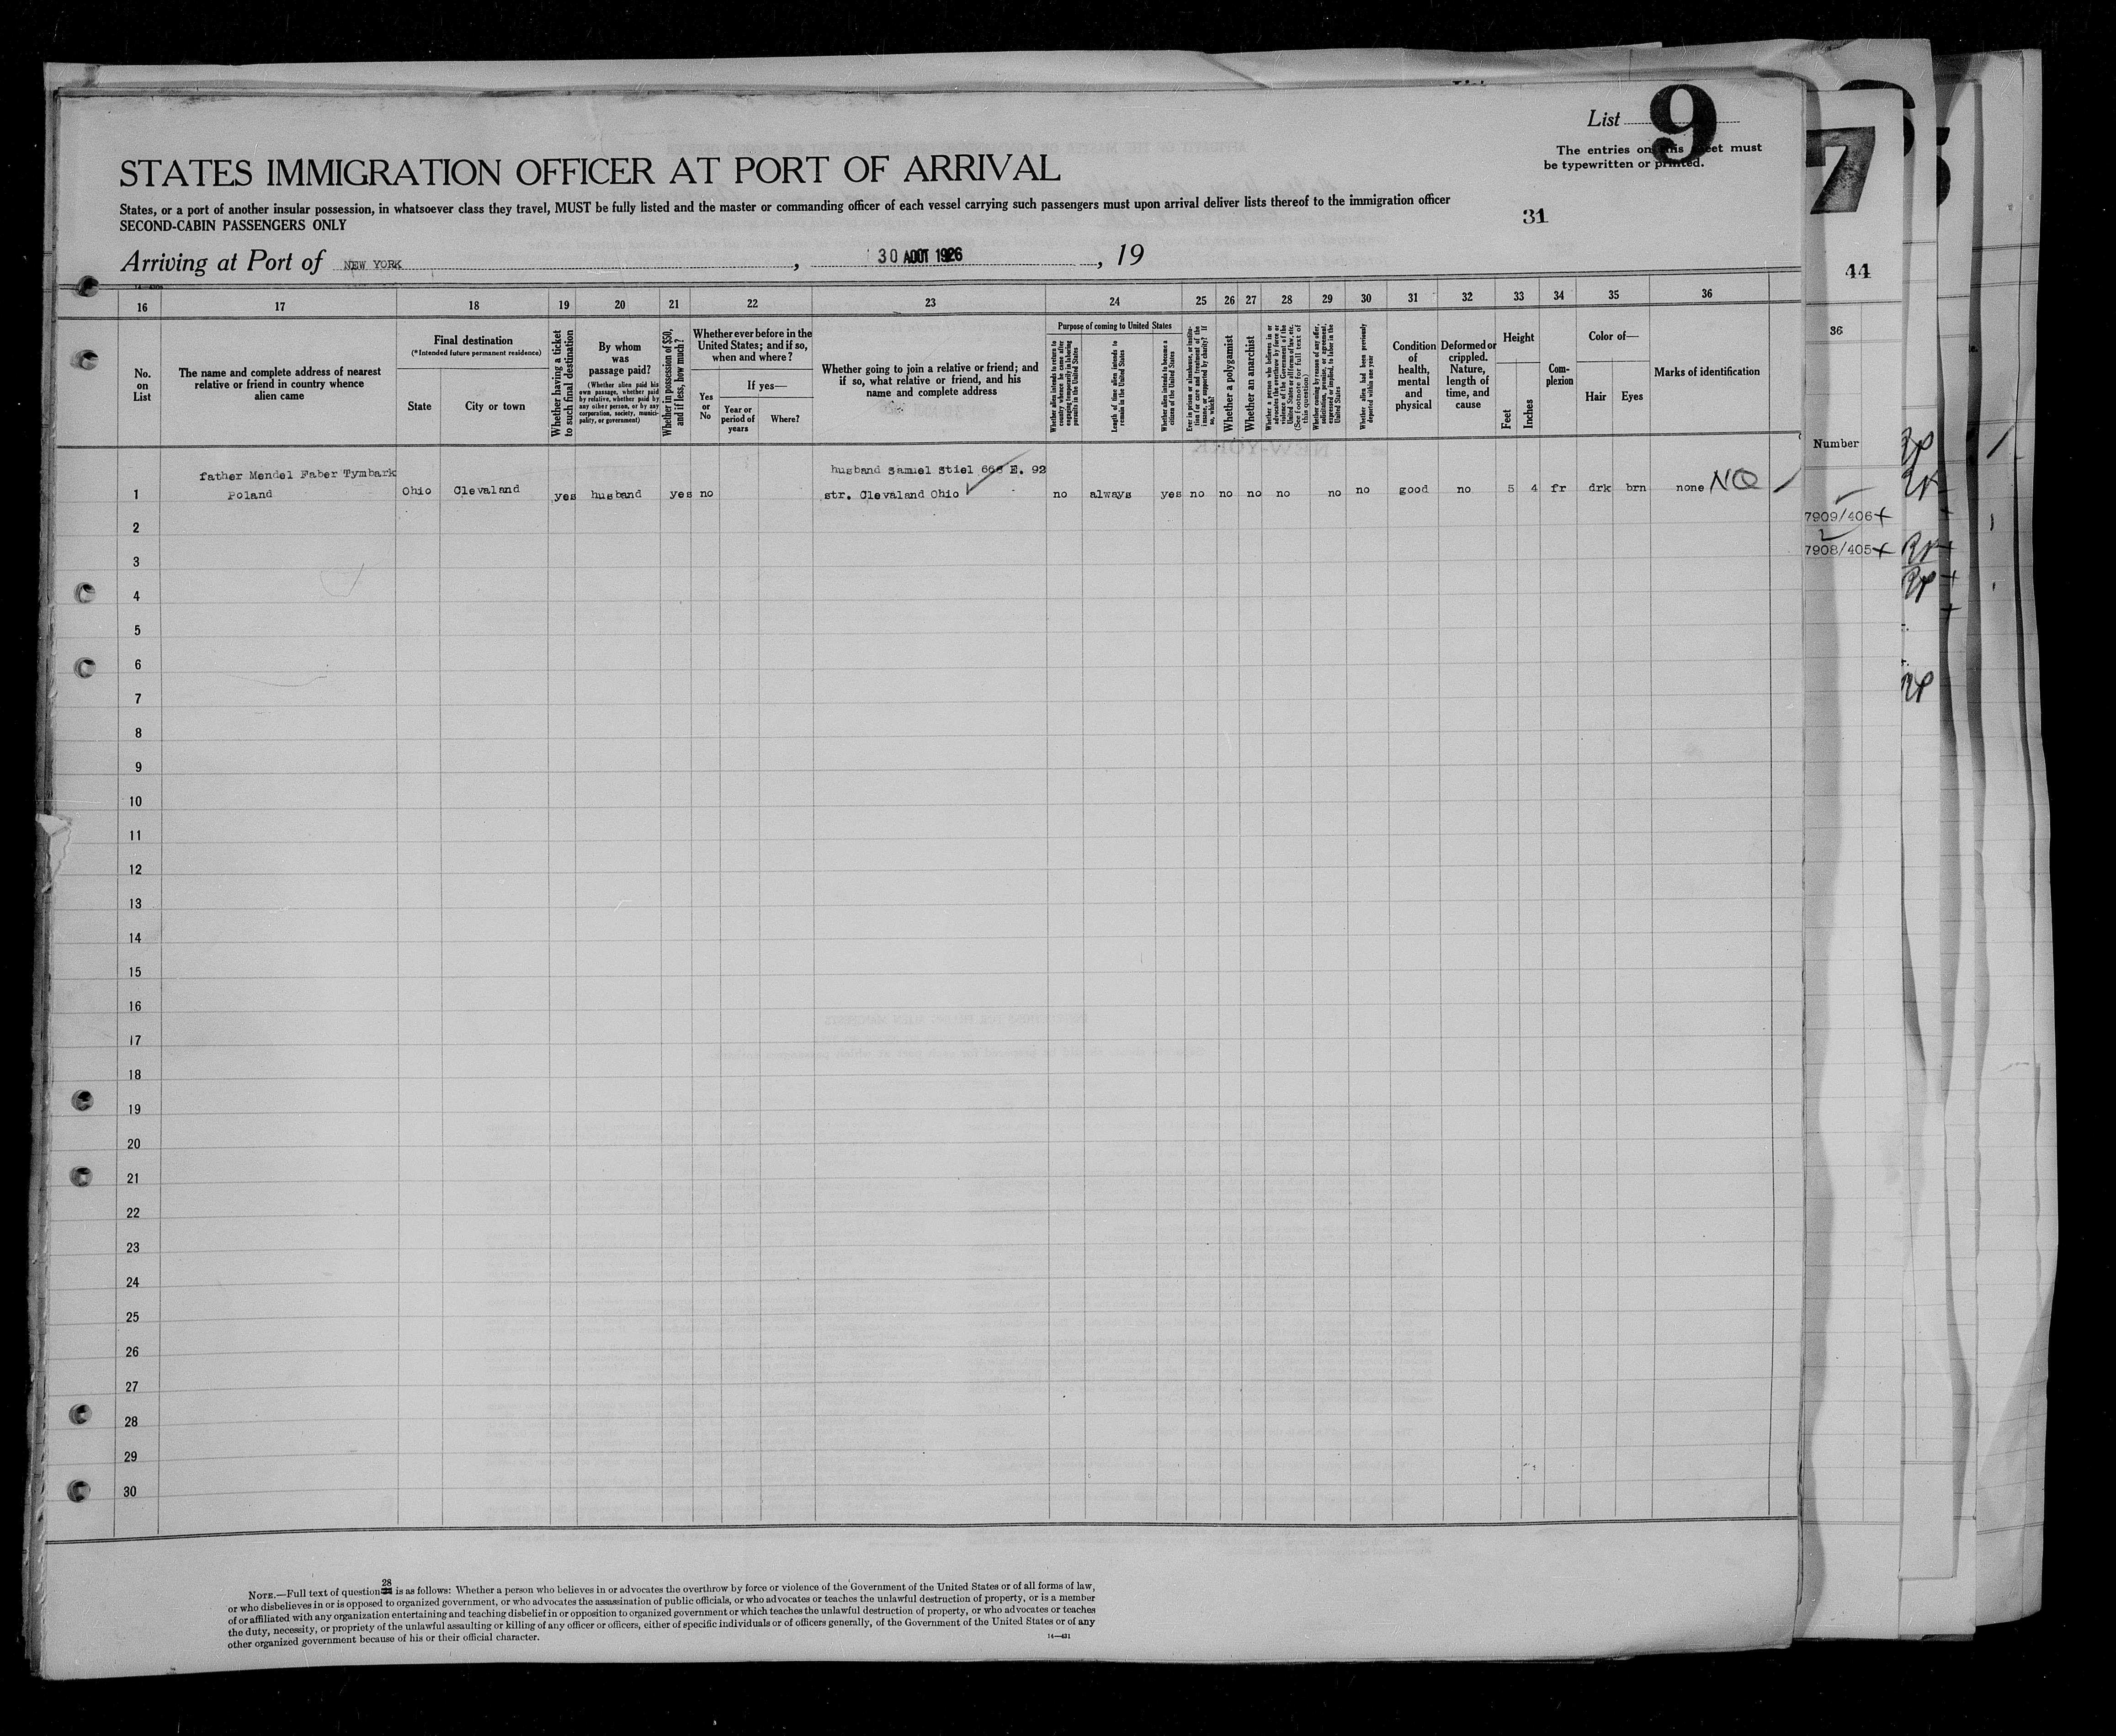 List 9
The entries on this sheet must
be typewritten or printed.
STATES IMMIGRATION OFFICER AT PORT OF ARRIVAL
States, or a port of another insular possession, in whatsoever class they travel, MUST be fully listed and the master or commanding officer of each vessel carrying such passengers must upon arrival deliver lists thereof to the immigration officer
SECOND-CABIN PASSENGERS ONLY
31
Arriving at Port of NEW YORK, 30 AOUT 1926, 19
16 17 18 19 20 21 22 23 24 25 26 27 28 29 30 31 32 33 34 35 36
No. on List
The name and complete address of nearest relative or friend in country whence alien came
Final destination
(*Intended future permanent residence)
State
City or town
Whether having a ticket to such final destination
By whom was passage paid?
(Whether alien paid his own passage, whether paid by relative, whether paid by any other person, or by any corporation, society, municipality, or government)
Whether in possession of $50, and if less, how much?
Whether ever before in the United States; and if so, when and where?
Yes or No
If yes—
Year or period of years
Where?
Whether going to join a relative or friend; and if so, what relative or friend, and his name and complete address
Purpose of coming to United States
Whether alien intends to return to country whence he came after engaging temporarily in laboring pursuits in the United States
Length of time alien intends to remain in the United States
Whether alien intends to become a citizen of the United States
Ever in prison or almshouse, or institution for care and treatment of the insane, or supported by charity? If so, which?
Whether a polygamist
Whether an anarchist
Whether a person who believes in or advocates the overthrow by force or violence of the Government of the United States or all forms of law, etc. (See footnote for full text of this question)
Whether coming by reason of any offer, solicitation, promise, or agreement, expressed or implied, to labor in the United States
Whether alien had been previously deported within one year
Condition of health, mental and physical
Deformed or crippled. Nature, length of time, and cause
Height
Feet
Inches
Com-plexion
Color of—
Hair
Eyes
Marks of identification
father Mendel Faber Tymbark
husband Samuel Stiel 666 E. 92
1 Poland Ohio Clevaland yes husband yes no str. Clevaland Ohio no always yes no no no no no no good no 5 4 fr drk brn none NQ
2
3
4
5
6
7
8
9
10
11
12
13
14
15
16
17
18
19
20
21
22
23
24
25
26
27
28
29
30
28
NOTE.—Full text of question is as follows: Whether a person who believes in or advocates the overthrow by force or violence of the Government of the United States or of all forms of law,
or who disbelieves in or is opposed to organized government, or who advocates the assassination of public officials, or who advocates or teaches the unlawful destruction of property, or is a member
of or affiliated with any organization entertaining and teaching disbelief in or opposition to organized government or which teaches the unlawful destruction of property, or who advocates or teaches
the duty, necessity, or propriety of the unlawful assaulting or killing of any officer or officers, either of specific individuals or of officers generally, of the Government of the United States or of any
other organized government because of his or their official character.
14—431
7
44
36
Number
7909/406
7908/405